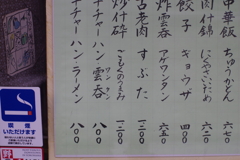 中華飯 ちゅうかどん 六七〇
肉什錦 にくやさいいため 六二〇
餃子 ギョウザ 四〇〇
炸雲呑 アゲワンタン 六五〇
古老肉 すぶた 一二〇〇
炒什砕 ごもくのうまみ 一二〇〇
ナチャーハン 雲呑 ワンタン 八〇〇
ナチャーハン ラーメン 八〇〇
喫煙
いただけます